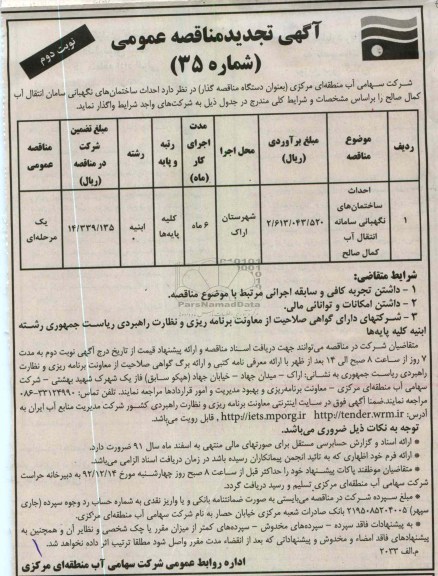 آگهی تجدیدمناقصه عمومی
(شماره ۳۵)
نوبت دوم
شرکت سهامی آب منطقه‌ای مرکزی (بعنوان دستگاه مناقصه گذار) در نظر دارد احداث ساختمان‌های نگهبانی سامان انتقال آب
کمال صالح را براساس مشخصات و شرایط کلی مندرج در جدول ذیل به شرکت‌های واجد شرایط واگذار نماید.
ردیف | موضوع مناقصه | مبلغ برآوردی (ریال) | محل اجرا | مدت اجرای کار (ماه) | رتبه و پایه | رشته | مبلغ تضمین شرکت در مناقصه (ریال) | مناقصه عمومی
۱ | احداث ساختمان‌های نگهبانی سامانه انتقال آب کمال صالح | ۲/۶۱۳/۰۴۳/۵۲۰ | شهرستان اراک | ۶ ماه | کلیه پایه‌ها | ابنیه | ۱۴/۳۳۹/۱۳۵ | یک مرحله‌ای
شرایط متقاضی:
۱ - داشتن تجربه کافی و سابقه اجرائی مرتبط با موضوع مناقصه.
۲ - داشتن امکانات و توانائی مالی.
۳ - شرکتهای دارای گواهی صلاحیت از معاونت برنامه ریزی و نظارت راهبردی ریاست جمهوری رشته
ابنیه کلیه پایه‌ها
متقاضیان شرکت در مناقصه می‌توانند جهت دریافت اسناد مناقصه و ارائه پیشنهاد قیمت از تاریخ درج آگهی نوبت دوم به مدت
۷ روز از ساعت ۸ صبح الی ۱۴ بعد از ظهر با ارائه معرفی نامه کتبی و ارائه برگ گواهی صلاحیت از معاونت برنامه ریزی و نظارت
راهبردی ریاست جمهوری به نشانی: اراک – میدان جهاد – خیابان جهاد (هپکو سابق) فاز یک شهرک شهید بهشتی – شرکت
سهامی آب منطقه‌ای مرکزی – معاونت برنامه‌ریزی و بهبود مدیریت و امور قراردادها مراجعه نمایند. تلفن تماس: ۳۳۱۲۴۹۹۰-۰۸۶
مراجعه نمایند.ضمنا آگهی فوق در سایت اینترنتی معاونت برنامه ریزی و نظارت راهبردی کشور شرکت مدیریت منابع آب ایران به
آدرس: http://iets.mporg.ir http://tender.wrm.ir , قابل رویت می‌باشد.
توجه به نکات ذیل ضروری می‌باشد.
* ارائه اسناد و گزارش حسابرسی مستقل برای صورتهای مالی منتهی به اسفند ماه سال ۹۱ ضرورت دارد.
* ارائه فرم خود اظهاری که به تائید انجمن پیمانکاران رسیده باشد در زمان دریافت اسناد الزامی می‌باشد.
* متقاضیان موظفند پاکات پیشنهاد خود را حداکثر قبل از ساعت ۸ صبح روز چهارشنبه مورخ ۹۲/۱۲/۱۴ به دبیرخانه حراست
شرکت سهامی آب منطقه‌ای مرکزی تسلیم و رسید دریافت گردد.
* مبلغ سپرده شرکت در مناقصه می‌بایستی به صورت ضمانتنامه بانکی و یا واریز نقدی به شماره حساب رد وجوه سپرده (جاری
سپهر) ۲۱۹۵۰۸۵۲۰۴۰۰۵ بانک صادرات شعبه مرکزی خیابان حصار به نام شرکت سهامی آب منطقه‌ای مرکزی.
* به پیشنهادات فاقد سپرده - سپرده‌های مخدوش - سپرده‌های کمتر از میزان مقرر یا چک شخصی و نظایر آن و همچنین به
پیشنهادهای فاقد امضاء و مخدوش و پیشنهاداتی که بعد از انقضاء مدت مقرر واصل شود مطلقا ترتیب اثر داده نخواهد شد.
م.الف ۲۰۳۳
اداره روابط عمومی شرکت سهامی آب منطقه‌ای مرکزی